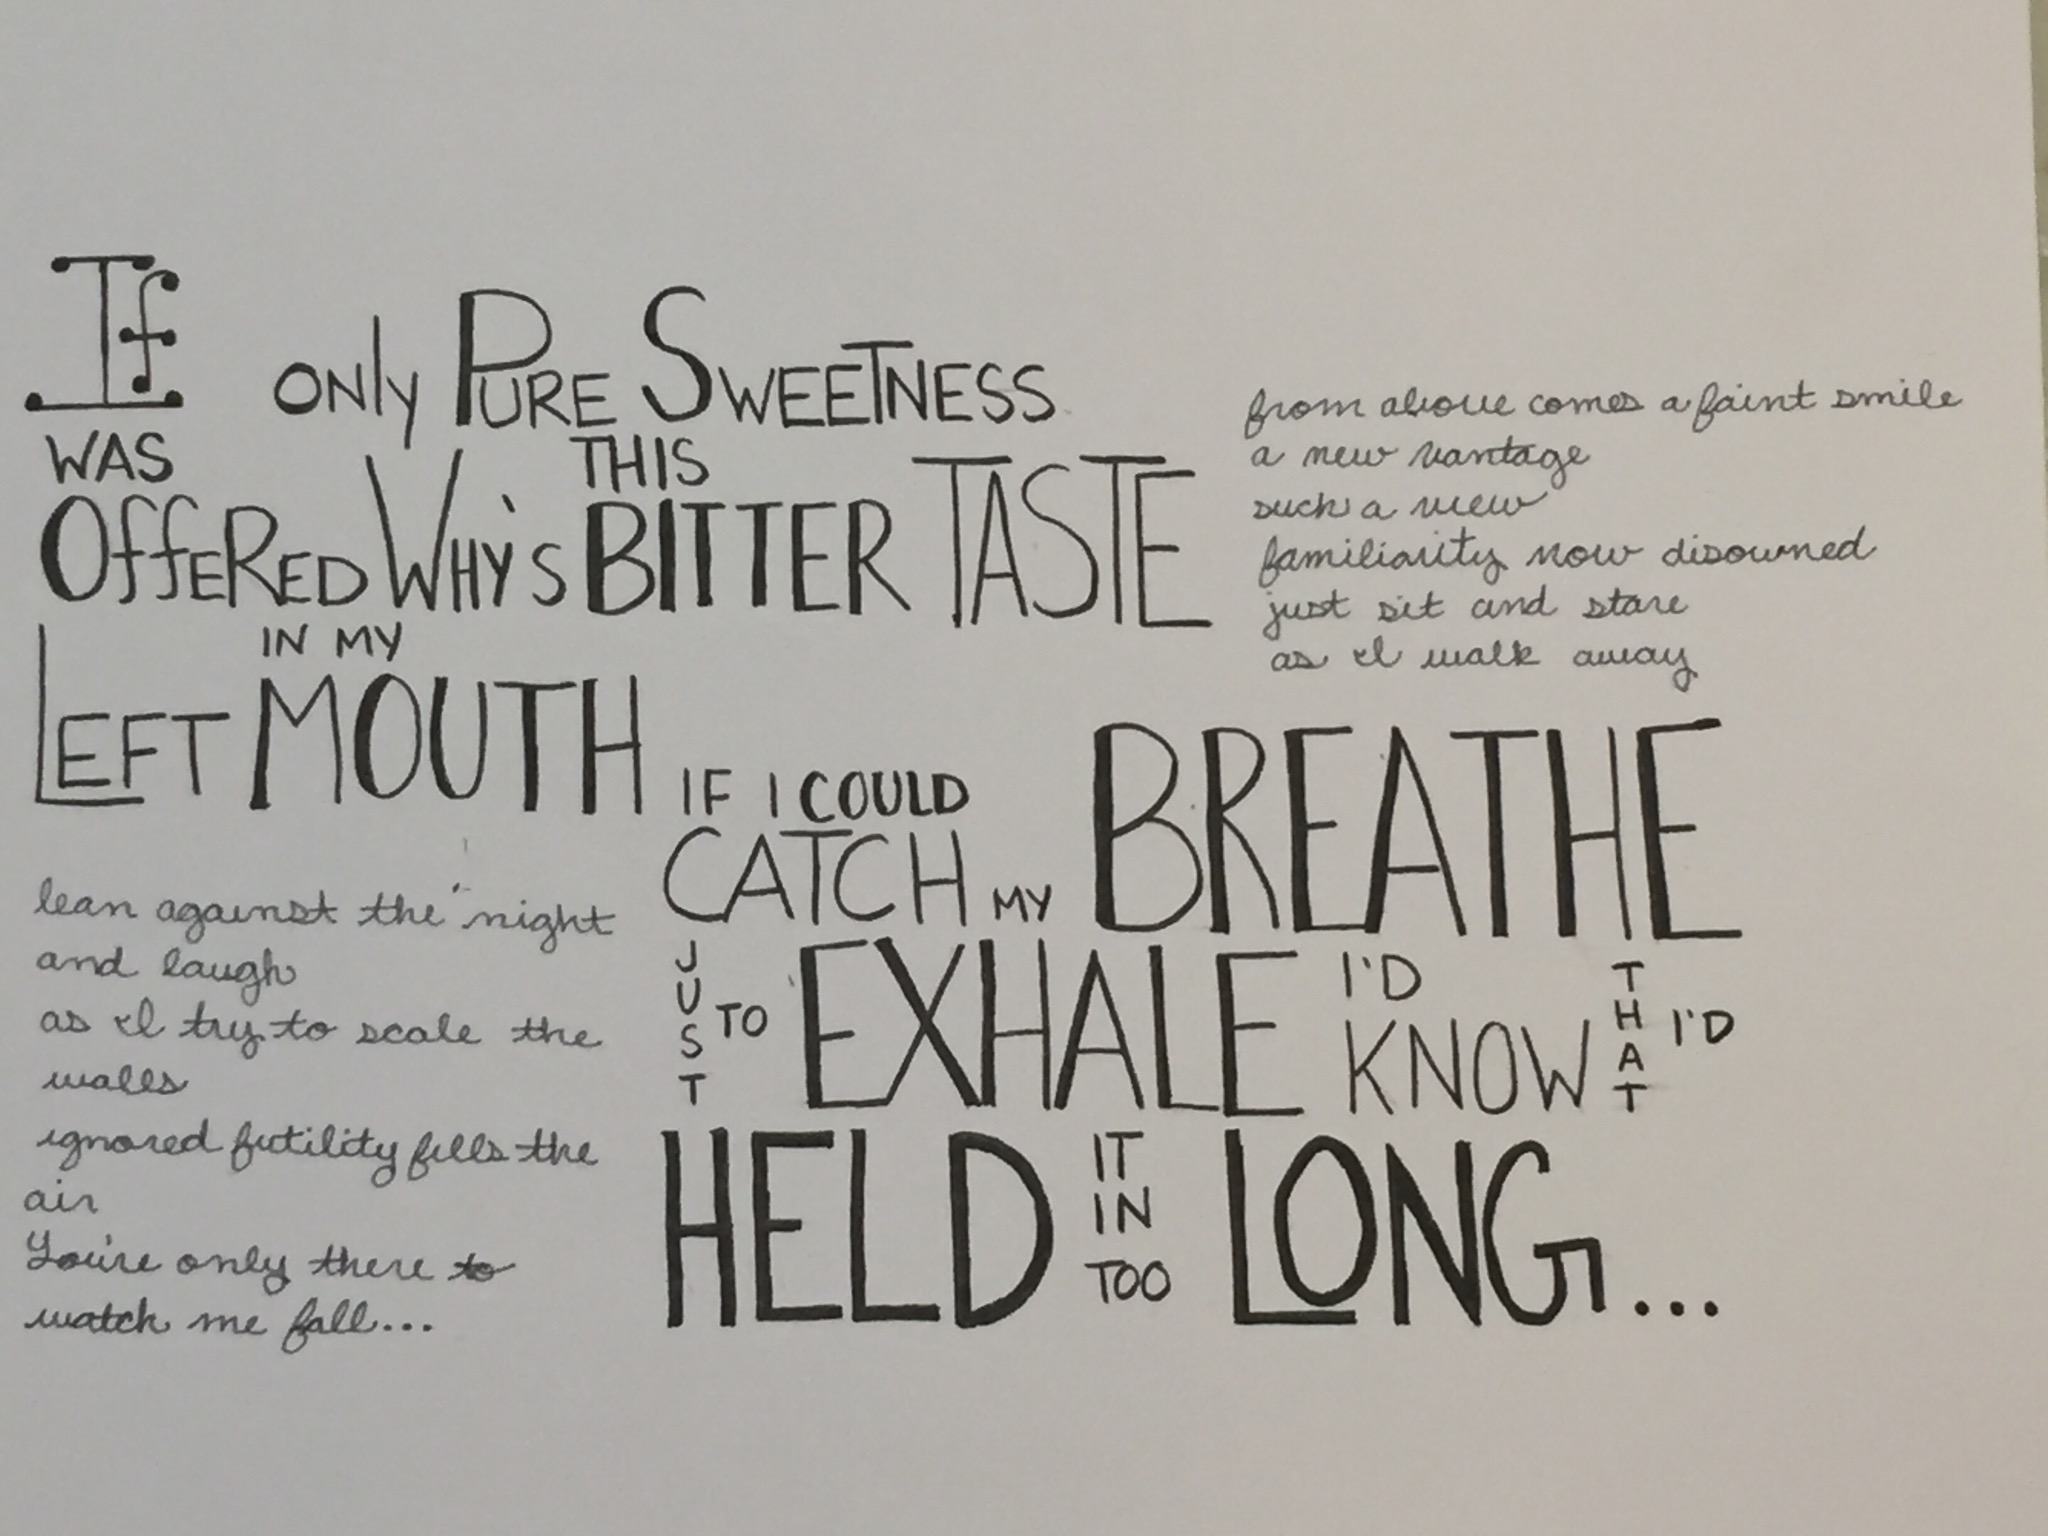 If ONly PURE SWEETNESS
WAS
OffERED WHY'S THIS BITTER TASTE
LEFT IN MY MOUTH
from above comes a faint smile
a new vantage
such a view
familiarity now disowned
just sit and stare
as I walk away
IF I COULD
CATCH MY BREATHE
JUST TO EXHALE I'D KNOW THAT I'D
HELD IT IN TOO LONG...
lean against the night
and laugh
as I try to scale the
walls
ignored futility fills the
air
You're only there to
watch me fall...